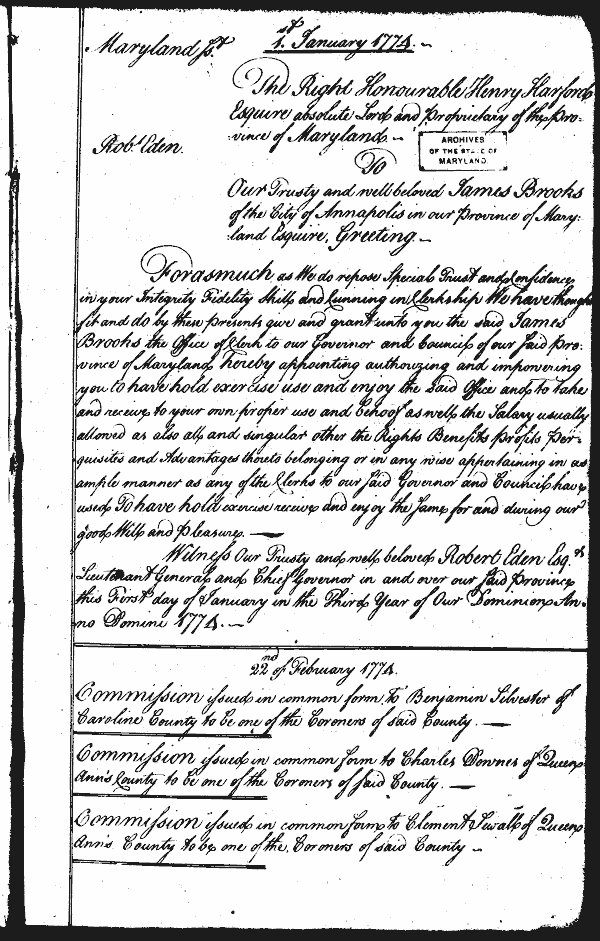 1.st January 1774.
Maryland Sst
The Right Honourable Henry Harford
Esquire absolute Lord and Proprietary of the Pro-
vince of Maryland
ARCHIVES
OF THE STATE OF
MARYLAND.
Robt. Eden.
To
Our Trusty and well beloved James Brooks
of the City of Annapolis in our Province of Mary-
land Esquire, Greeting
Forasmuch as We do repose Special Trust and Confidence
in your Integrity Fidelity Skill and Cunning in Clerkship We have thought
fit and do by these presents give and grant unto you the said James
Brooks the Office of Clerk to our Governor and Council of our said Pro-
vince of Maryland hereby appointing authorizing and impowering
you to have hold exercise use and enjoy the said Office and to take
and receive to your own proper use and behoof as well the Salary usually
allowed as also all and singular other the Rights Benefits Profits Per-
quisites and Advantages thereto belonging or in any wise appertaining in as
ample manner as any of the Clerks to our said Governor and Council have
used To have hold exercise receive and enjoy the same for and during our
good Will and Pleasure.
Witness Our Trusty and well beloved Robert Eden Esq.r
Lieutenant General and Chief Governor in and over our said Province
this First day of January in the Third Year of Our Dominion An-
no Domini 1774.
22nd of February 1774.
Commission issued in common form to Benjamin Silvester of
Caroline County to be one of the Coroners of said County.
Commission issued in common form to Charles Downes of Queen
Ann's County to be one of the Coroners of said County.
Commission issued in common form to Clement Sewall of Queen
Ann's County to be one of the Coroners of said County